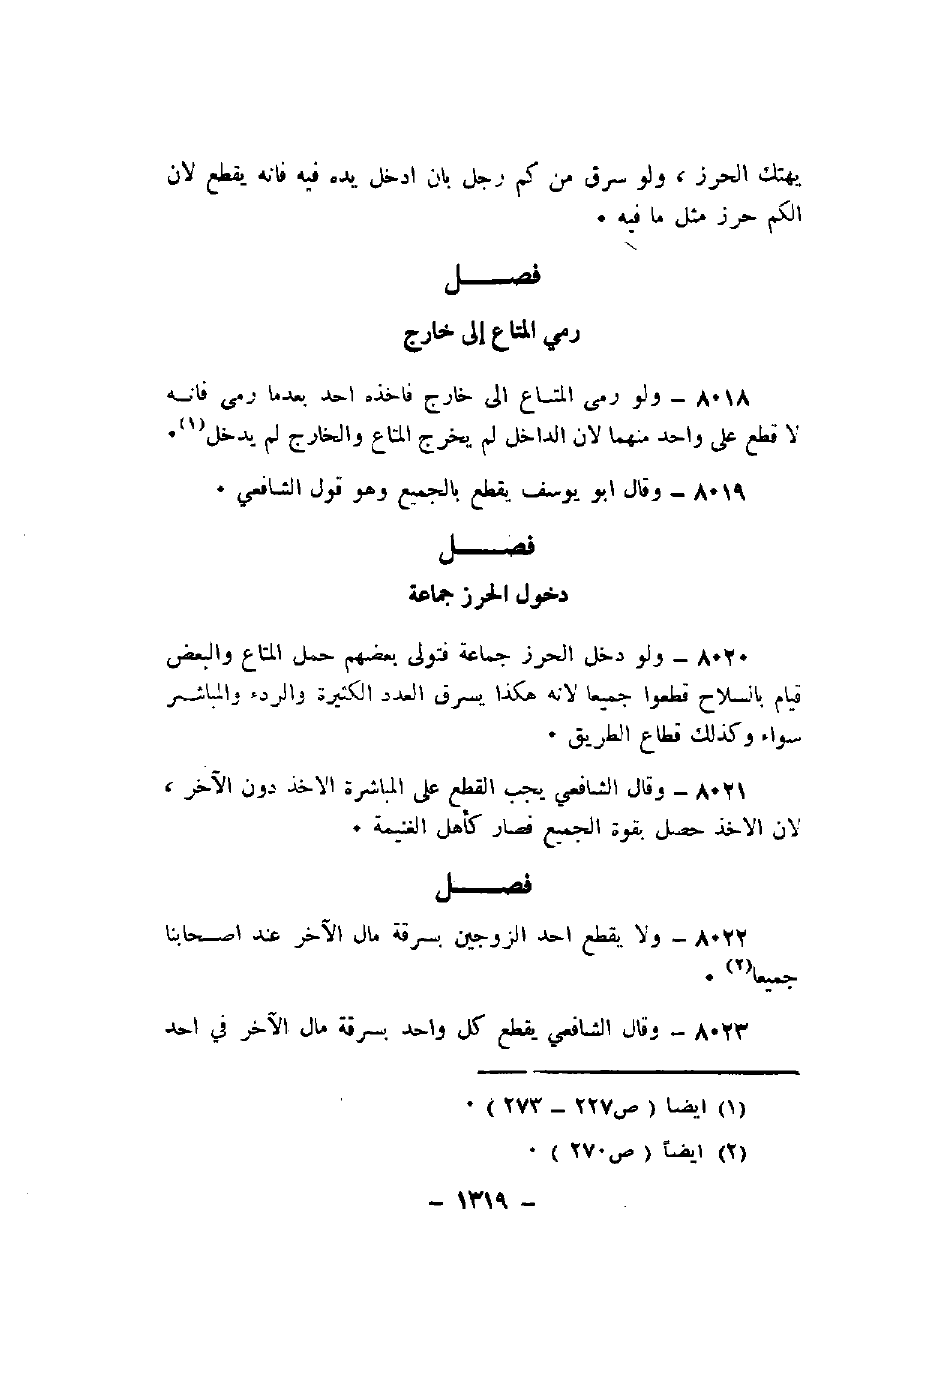 يهتك الحرز ، ولو سرق من كم رجل بان ادخل يده فيه فانه يقطع لان
الكم حرز مثل ما فيه ٠
فصـــــل
رمي المتاع إلى خارج
٨٠١٨ – ولو رمى المتـاع الى خارج فاخذه احد بعدما رمى فانـه
لا قطع على واحد منهما لان الداخل لم يخرج المتاع والخارج لم يدخل(١)٠
٨٠١٩ – وقال ابو يوسف يقطع بالجميع وهو قول الشافعي ٠
فصـــــل
دخول الحرز جماعة
٨٠٢٠ – ولو دخل الحرز جماعة فتولى بعضهم حمل المتاع والبعض
قيام بالسلاح قطعوا جميعا لانه هكذا يسرق العدد الكثيرة والردء والمباشـر
سواء وكذلك قطاع الطريق ٠
٨٠٢١ – وقال الشافعي يجب القطع على المباشرة الاخذ دون الآخر ،
لان الاخذ حصل بقوة الجميع فصار كأهل الغنيمة ٠
فصـــــل
٨٠٢٢ – ولا يقطع احد الزوجين بسرقة مال الآخر عند اصـحابنا
جميعا(٢) ٠
٨٠٢٣ – وقال الشافعي يقطع كل واحد بسرقة مال الآخر في احد
(١) ايضا ( ص٢٢٧ – ٢٧٣ ) ٠
(٢) ايضاً ( ص٢٧٠ ) ٠
– ١٣١٩ –